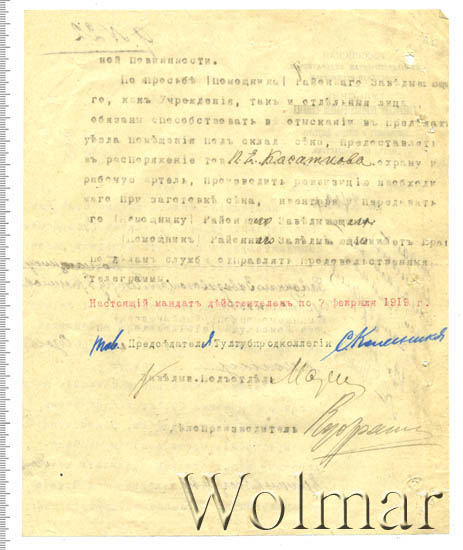 ной Повинности.
По просьбѣ /Помощника/ Районнаго Завѣдывающа-
го, какъ Учрежденія, такъ и отдѣльныя лица
обязаны способствовать въ отысканіи въ предѣлахъ
уѣзда помѣщенія подъ складъ сѣна, предоставлять
въ распоряженіе тов. Касаткова охрану и
рабочую артель, производить реквизицію необходи-
маго при заготовкѣ сѣна, инвентаря и передавать
его /Помощнику/ Районнаго Завѣдывающаго
/Помощникъ/ Районнаго Завѣдывающаго имѣетъ право
по дѣламъ службы отправлять Продовольственныя
Телеграммы.
Настоящій мандатъ дѣйствителенъ по 7 февраля 1919 г.
тов. Предсѣдателя Тулгубпродколлегіи
Завѣдыв. Подъотдѣл.
Дѣлопроизводитель
Wolmar